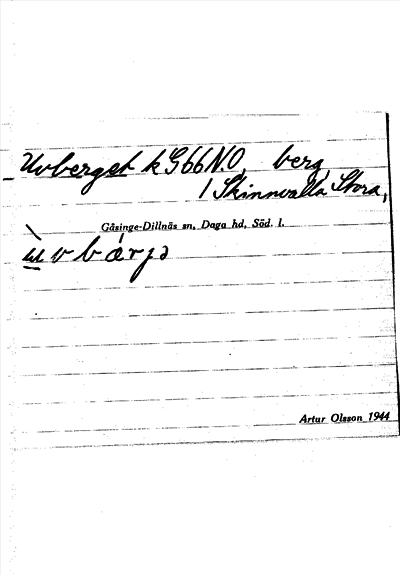 Uvberget k G66 N.O, berg,
/ Skinnvalla Stora,
Gåsinge-Dillnäs sn, Daga hd, Söd. l.
ùvbárjə
Artur Olsson 1944